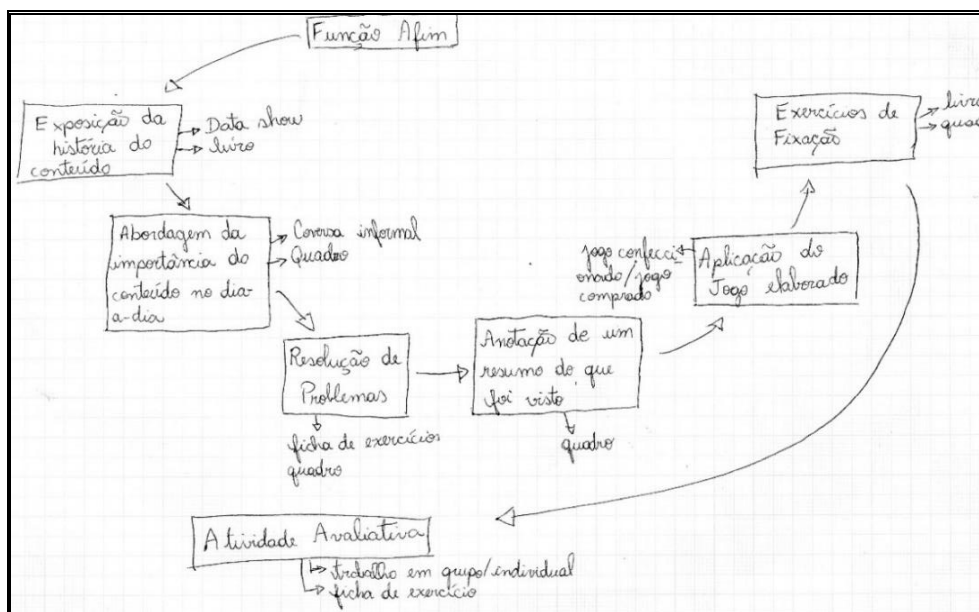 Função Afim
Exposição da
história do
conteúdo
Data show
livro
Abordagem da
importância do
conteúdo no dia-
a-dia
Coversa informal
Quadro
Resolução de
Problemas
ficha de exercícios
quadro
Anotação de um
resumo do que
foi visto
quadro
Aplicação do
Jogo elaborado
jogo confecci
onado/jogo
comprado
Exercícios de
Fixação
livro
quad
Atividade Avaliativa
trabalho em grupo/individual
ficha de exercício